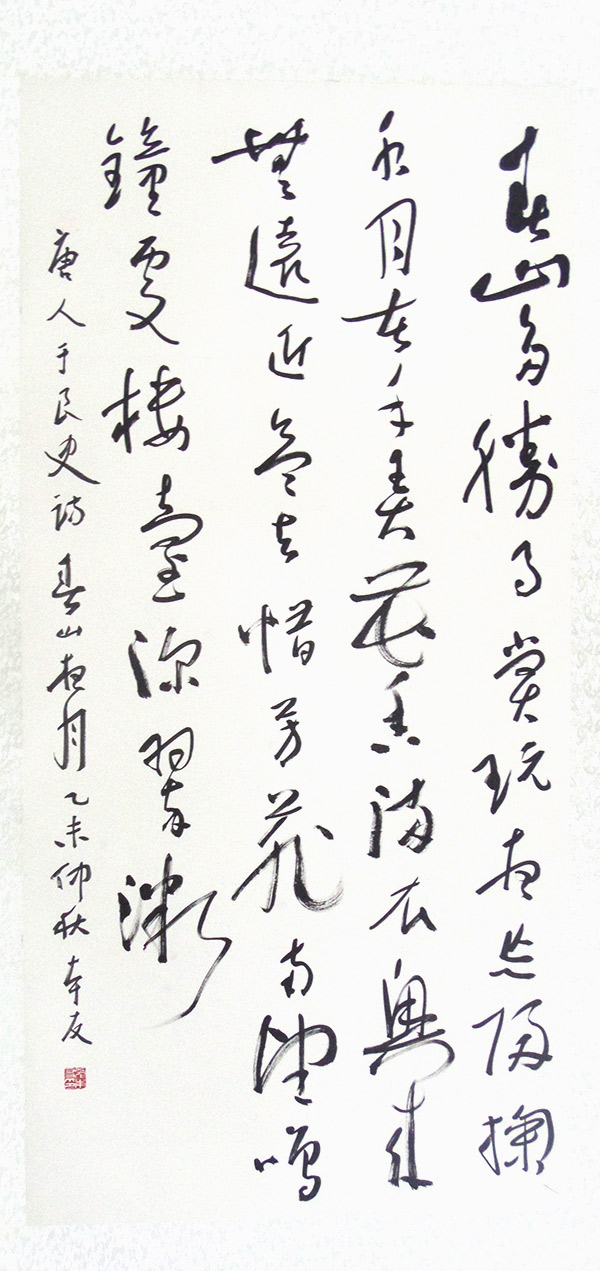 春山多勝事賞玩夜忘歸掬
水月在手弄花香滿衣興來
無遠近欲去惜芳菲南望鳴
鐘處樓臺深翠微
唐人于良史詩春山夜月乙未仲秋友